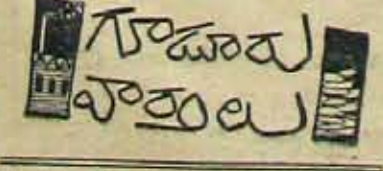 గూడూరు
వార్తలు